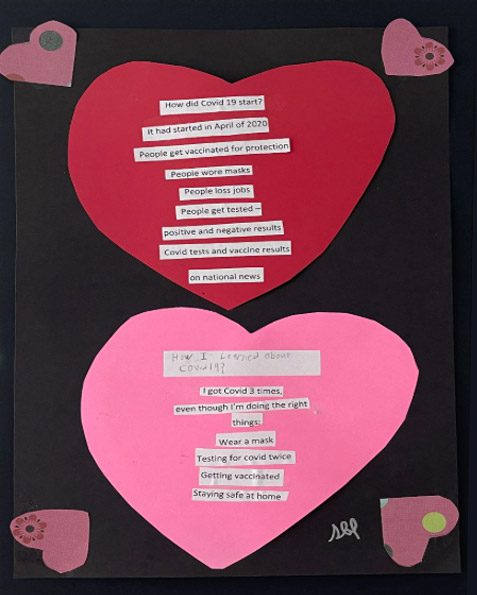 How did Covid 19 start?
It had started in April of 2020
People get vaccinated for protection
People wore masks
People loss jobs
People get tested –
positive and negative results
Covid tests and vaccine results
on national news
How I Learned about
Covid19?
I got Covid 3 times,
even though I'm doing the right
things:
Wear a mask
Testing for covid twice
Getting vaccinated
Staying safe at home